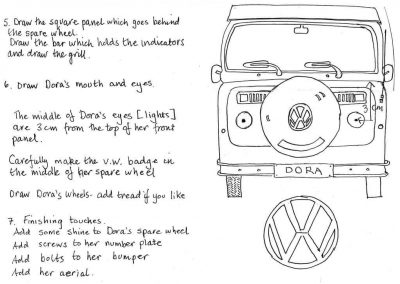 5. Draw the square panel which goes behind
the spare wheel.
Draw the bar which holds the indicators
and draw the grill.
6. Draw Dora's mouth and eyes.
The middle of Dora's eyes [lights]
are 3cm from the top of her front
panel.
Carefully make the V.W. badge in
the middle of her spare wheel
Draw Dora's wheels- add tread if you like
7. Finishing touches.
Add some shine to Dora's spare wheel
Add screws to her number plate
Add bolts to her bumper
Add her aerial.
3 cm
DORA